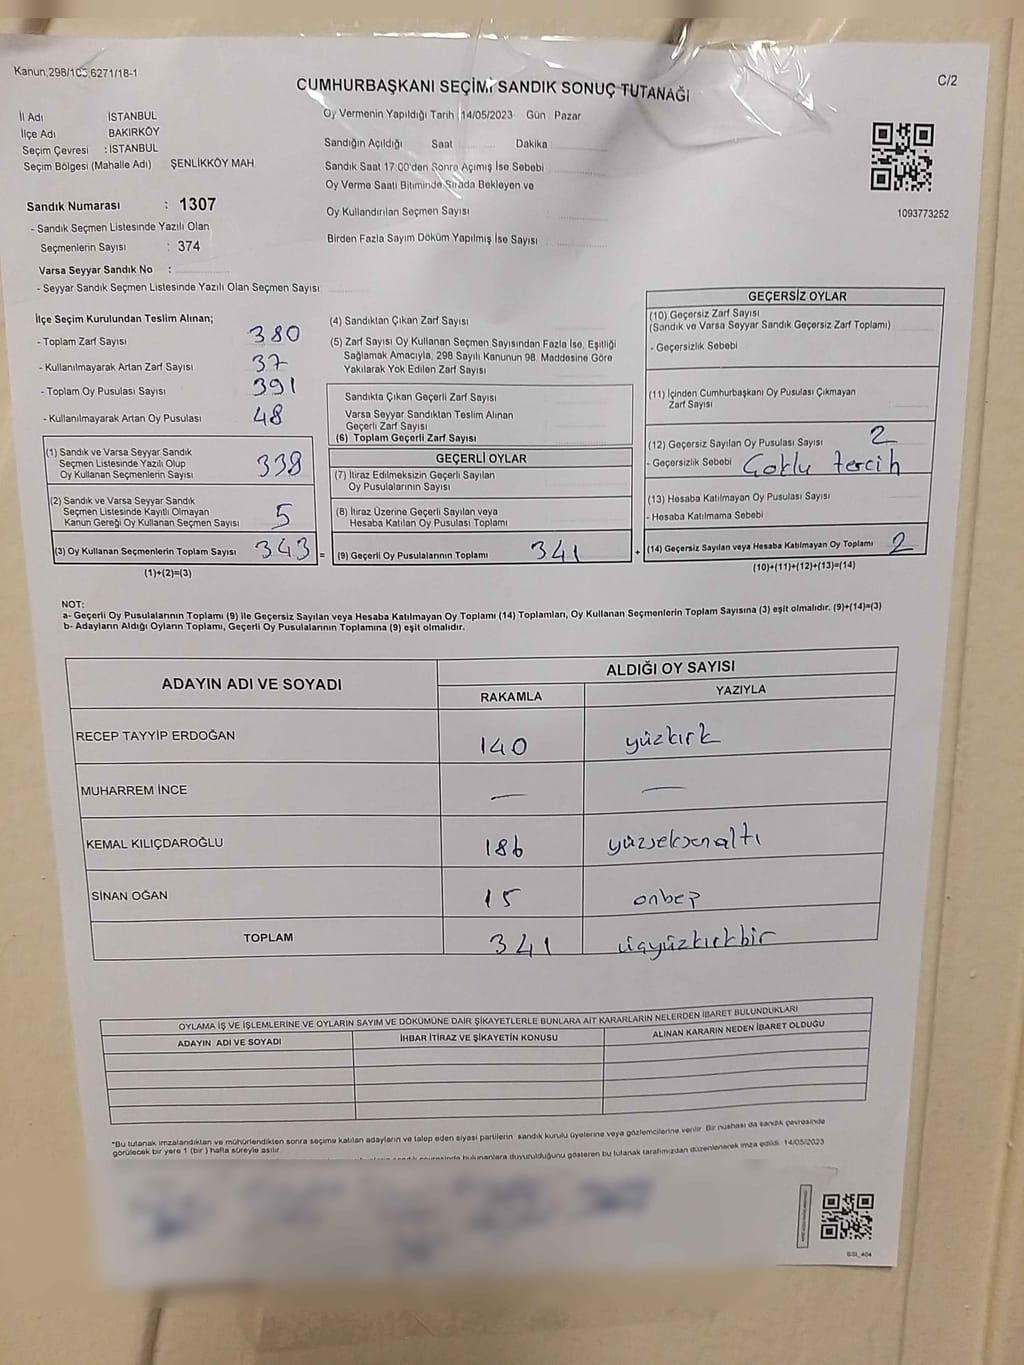 Kanun,298/105,6271/18-1
CUMHURBAŞKANI SEÇİMİ SANDIK SONUÇ TUTANAĞI
C/2
İl Adı İSTANBUL
İlçe Adı BAKIRKÖY
Seçim Çevresi : İSTANBUL
Seçim Bölgesi (Mahalle Adı) : ŞENLİKKÖY MAH
Oy Vermenin Yapıldığı Tarih 14/05/2023 Gün Pazar
Sandığın Açıldığı Saat Dakika
Sandık Saat 17:00'den Sonra Açımış İse Sebebi
Oy Verme Saati Bitiminde Sırada Bekleyen ve
Oy Kullandırılan Seçmen Sayısı
Birden Fazla Sayım Döküm Yapılmış İse Sayısı
1093773252
Sandık Numarası : 1307
- Sandık Seçmen Listesinde Yazılı Olan
Seçmenlerin Sayısı : 374
Varsa Seyyar Sandık No :
- Seyyar Sandık Seçmen Listesinde Yazılı Olan Seçmen Sayısı
İlçe Seçim Kurulundan Teslim Alınan;
- Toplam Zarf Sayısı 380
- Kullanılmayarak Artan Zarf Sayısı 37
- Toplam Oy Pusulası Sayısı 391
- Kullanılmayarak Artan Oy Pusulası 48
(1) Sandık ve Varsa Seyyar Sandık
Seçmen Listesinde Yazılı Olup
Oy Kullanan Seçmenlerin Sayısı 338
(2) Sandık ve Varsa Seyyar Sandık
Seçmen Listesinde Kayıtlı Olmayan
Kanun Gereği Oy Kullanan Seçmen Sayısı 5
(3) Oy Kullanan Seçmenlerin Toplam Sayısı 343 =
(1)+(2)=(3)
(4) Sandıktan Çıkan Zarf Sayısı
(5) Zarf Sayısı Oy Kullanan Seçmen Sayısından Fazla İse, Eşitliği
Sağlamak Amacıyla, 298 Sayılı Kanunun 98. Maddesine Göre
Yakılarak Yok Edilen Zarf Sayısı
Sandıkta Çıkan Geçerli Zarf Sayısı
Varsa Seyyar Sandıktan Teslim Alınan
Geçerli Zarf Sayısı
(6) Toplam Geçerli Zarf Sayısı
GEÇERLİ OYLAR
(7) İtiraz Edilmeksizin Geçerli Sayılan
Oy Pusulalarının Sayısı
(8) İtiraz Üzerine Geçerli Sayılan veya
Hesaba Katılan Oy Pusulası Toplamı
(9) Geçerli Oy Pusulalarının Toplamı 341 +
GEÇERSİZ OYLAR
(10) Geçersiz Zarf Sayısı
(Sandık ve Varsa Seyyar Sandık Geçersiz Zarf Toplamı)
- Geçersizlik Sebebi
(11) İçinden Cumhurbaşkanı Oy Pusulası Çıkmayan
Zarf Sayısı
(12) Geçersiz Sayılan Oy Pusulası Sayısı 2
- Geçersizlik Sebebi Çoklu tercih
(13) Hesaba Katılmayan Oy Pusulası Sayısı
- Hesaba Katılmama Sebebi
(14) Geçersiz Sayılan veya Hesaba Katılmayan Oy Toplamı 2
(10)+(11)+(12)+(13)=(14)
NOT:
a- Geçerli Oy Pusulalarının Toplamı (9) ile Geçersiz Sayılan veya Hesaba Katılmayan Oy Toplamı (14) Toplamları, Oy Kullanan Seçmenlerin Toplam Sayısına (3) eşit olmalıdır. (9)+(14)=(3)
b- Adayların Aldığı Oyların Toplamı, Geçerli Oy Pusulalarının Toplamına (9) eşit olmalıdır.
ADAYIN ADI VE SOYADI ALDIĞI OY SAYISI
RAKAMLA YAZIYLA
RECEP TAYYİP ERDOĞAN 140 yüzkırk
MUHARREM İNCE — —
KEMAL KILIÇDAROĞLU 186 yüzseksenaltı
SİNAN OĞAN 15 onbeş
TOPLAM 341 üçyüzkırkbir
OYLAMA İŞ VE İŞLEMLERİNE VE OYLARIN SAYIM VE DÖKÜMÜNE DAİR ŞİKAYETLERLE BUNLARA AİT KARARLARIN NELERDEN İBARET BULUNDUKLARI
ADAYIN ADI VE SOYADI İHBAR İTİRAZ VE ŞİKAYETİN KONUSU ALINAN KARARIN NEDEN İBARET OLDUĞU
*Bu tutanak imzalandıktan ve mühürlendikten sonra seçime katılan adayların ve talep eden siyasi partilerin sandık kurulu üyelerine veya gözlemcilerine verilir. Bir nüshası da sandık çevresinde
görülecek bir yere 1 (bir) hafta süreyle asılır
bulunanlara duyurulduğunu gösteren bu tutanak tarafımızdan düzenlenerek imza edildi. 14/05/2023